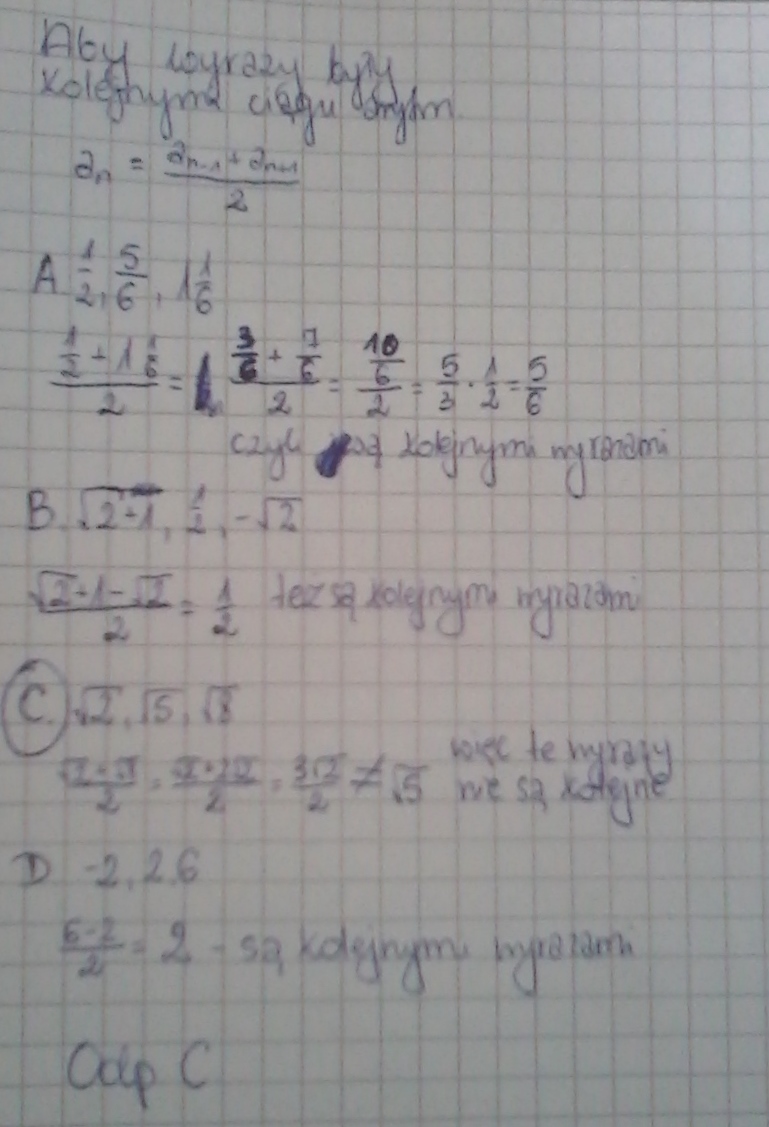 Aby wyrazy były
kolejnymi ciągu arytm.
aₙ = (aₙ₋₁ + aₙ₊₁)/2
A 1/2, 5/6, 1 1/6
(1/2 + 1 1/6)/2 = (3/6 + 7/6)/2 = (10/6)/2 = 5/3 · 1/2 = 5/6
czyli są kolejnymi wyrazami
B. √2+1, 1/2, -√2
(√2+1-√2)/2 = 1/2 też są kolejnymi wyrazami
C. √2, √5, √8
(√2+√8)/2 = (√2+2√2)/2 = 3√2/2 ≠ √5 więc te wyrazy
nie są kolejne
D -2, 2, 6
(6-2)/2 = 2 - są kolejnymi wyrazami
Odp C